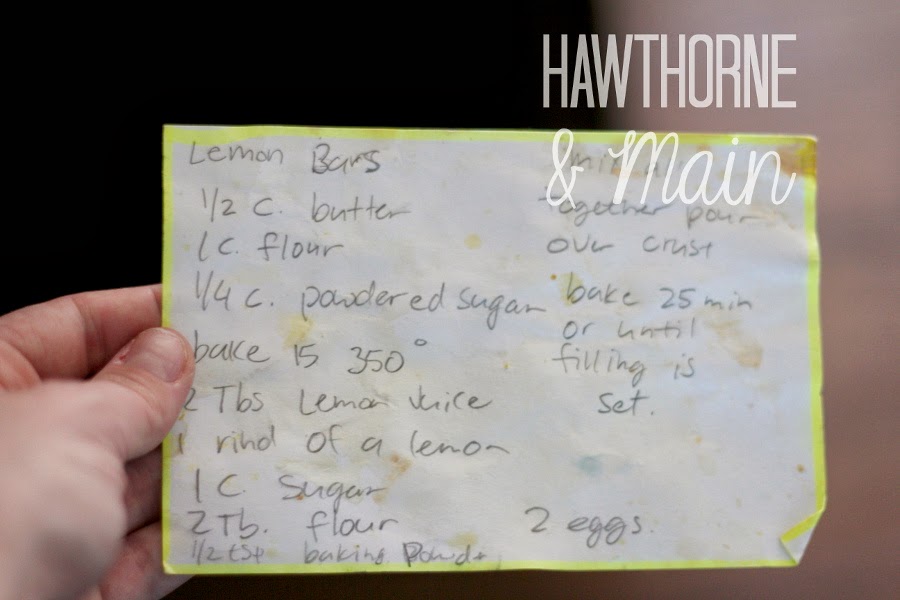 HAWTHORNE
& Main
Lemon Bars
1/2 c. butter
1 c. flour
1/4 c. powdered sugar
bake 15 350°
2 Tbs Lemon Juice
1 rind of a lemon
1 c. sugar
2 Tb. flour
1/2 tst baking Powd
together pour
over crust
bake 25 min
or until
filling is
set.
2 eggs.